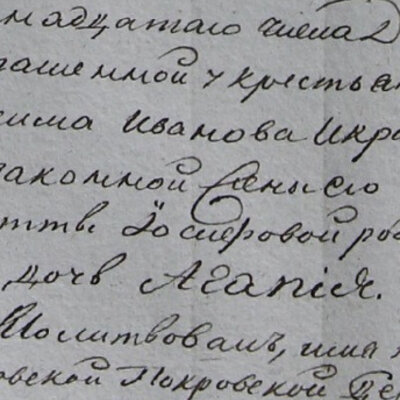 надцатаго числа
ашенной у крестья
сима Иванова Икра
законной
Іосифовой ро
дочь Агапія.
Молитвовалъ, има
овской Покровской Це